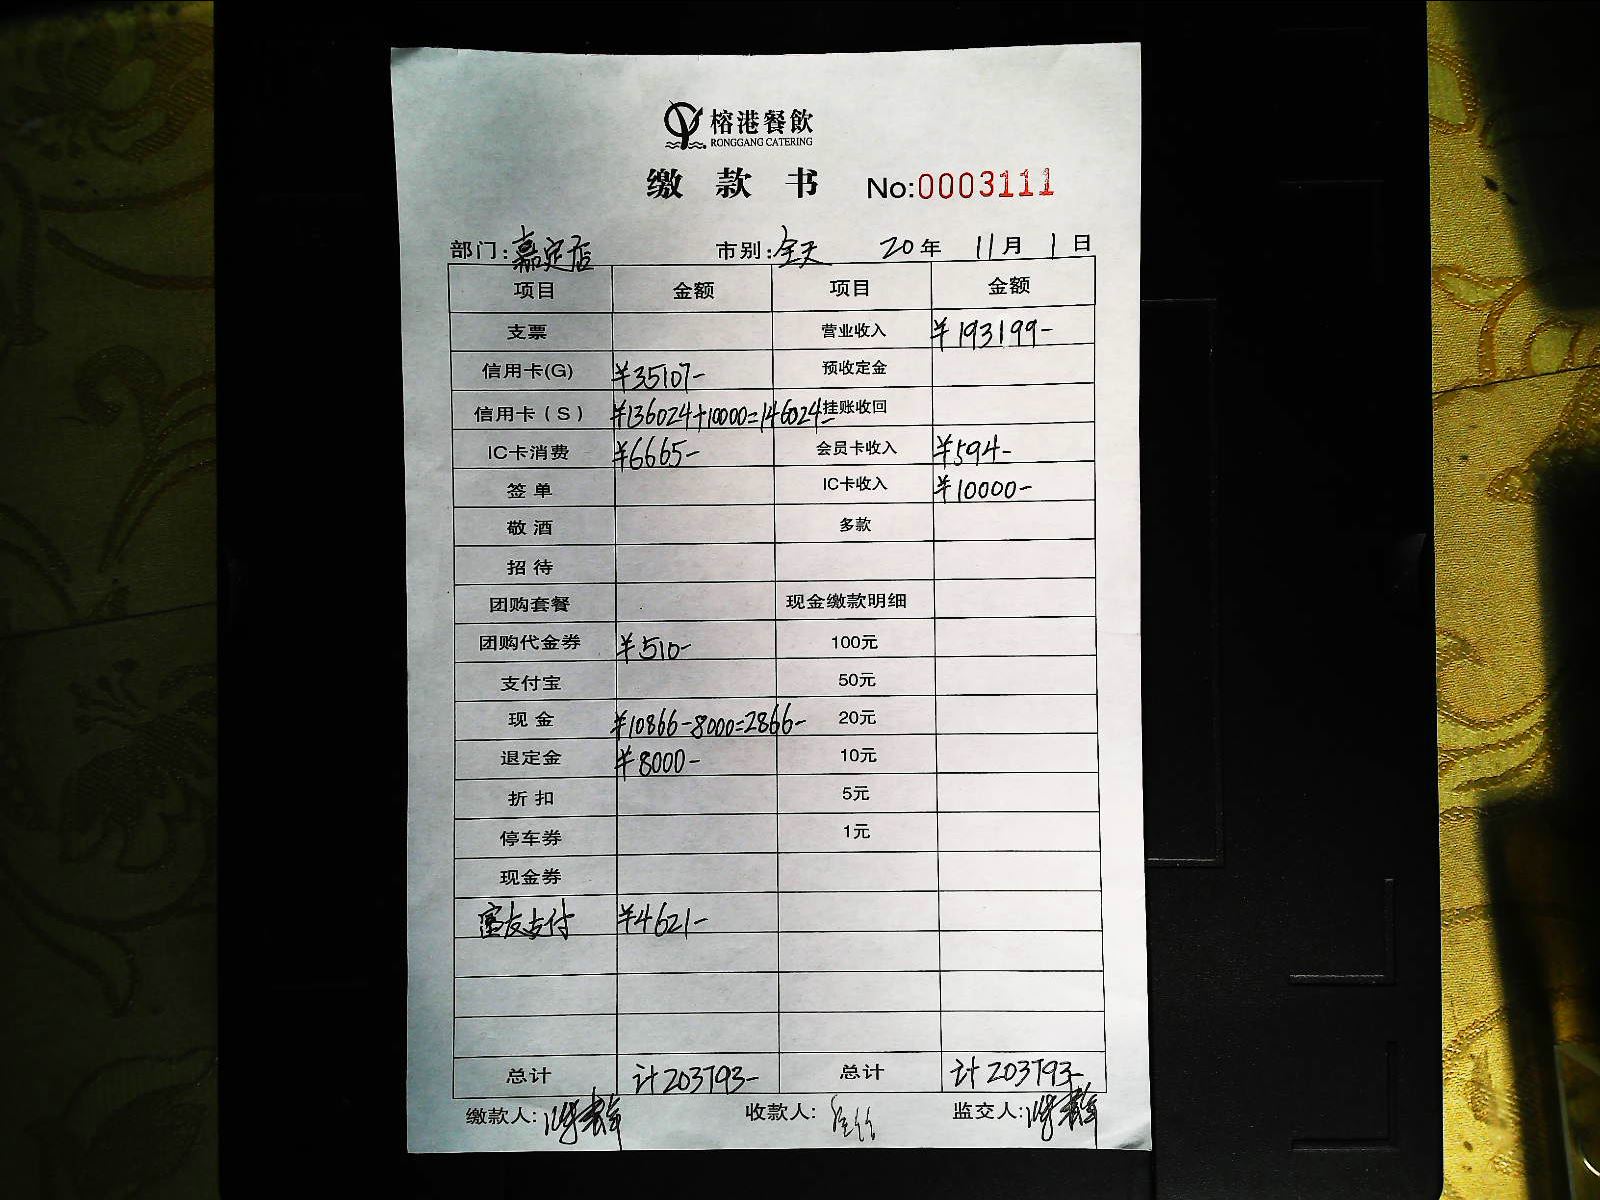 榕港餐飲
RONGGANG CATERING
缴款书 No:0003111
部门:嘉定店 市别:全天 20年 11月 1日
项目 金额 项目 金额
支票 营业收入 ¥193199-
信用卡(G) ¥35107- 预收定金
信用卡(S) ¥136024+10000=146024- 挂账收回
IC卡消费 ¥6665- 会员卡收入 ¥594-
签单 IC卡收入 ¥10000-
敬酒 多款
招待
团购套餐 现金缴款明细
团购代金券 ¥510- 100元
支付宝 50元
现金 ¥10866-8000=2866- 20元
退定金 ¥8000- 10元
折扣 5元
停车券 1元
现金券
富友支付 ¥4621-
总计 计203793- 总计 计203793-
缴款人: 收款人: 监交人: